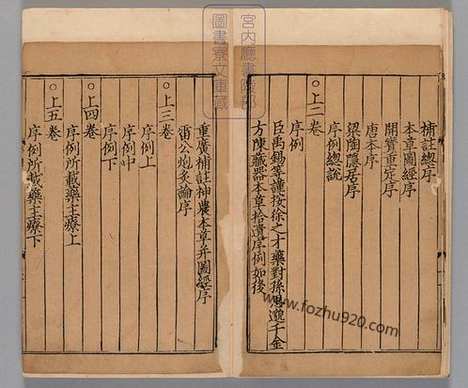 補註總序
本草圖經序
開寶重定序
唐本序
梁陶隱居序
序例總說
○上二卷
序例
臣禹錫等謹按徐之才藥對孫思邈千金
方陳藏器本草拾遺序例如後
重廣補註神農本草并圖經序
雷公炮炙論序
○上三卷
序例上
序例中
序例下
○上四卷
序例所載藥主療上
○上五卷
序例所載藥主療下
宮內廳書陵部
圖書寮文庫蔵
www.fozhu920.com